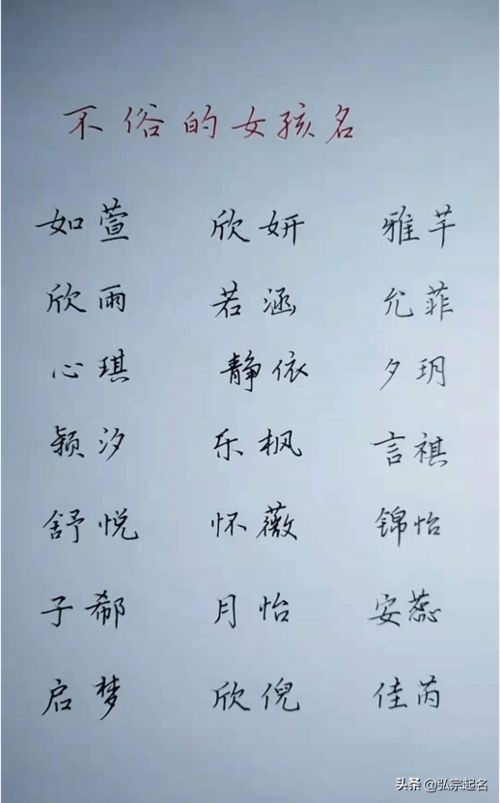 不俗的女孩名
如萱 欣妍 雅芊
欣雨 若涵 允菲
心琪 静依 夕玥
颖汐 乐枫 言祺
舒悦 怀薇 锦怡
子郗 月怡 安蕊
启梦 欣倪 佳芮
头条 @弘宗起名